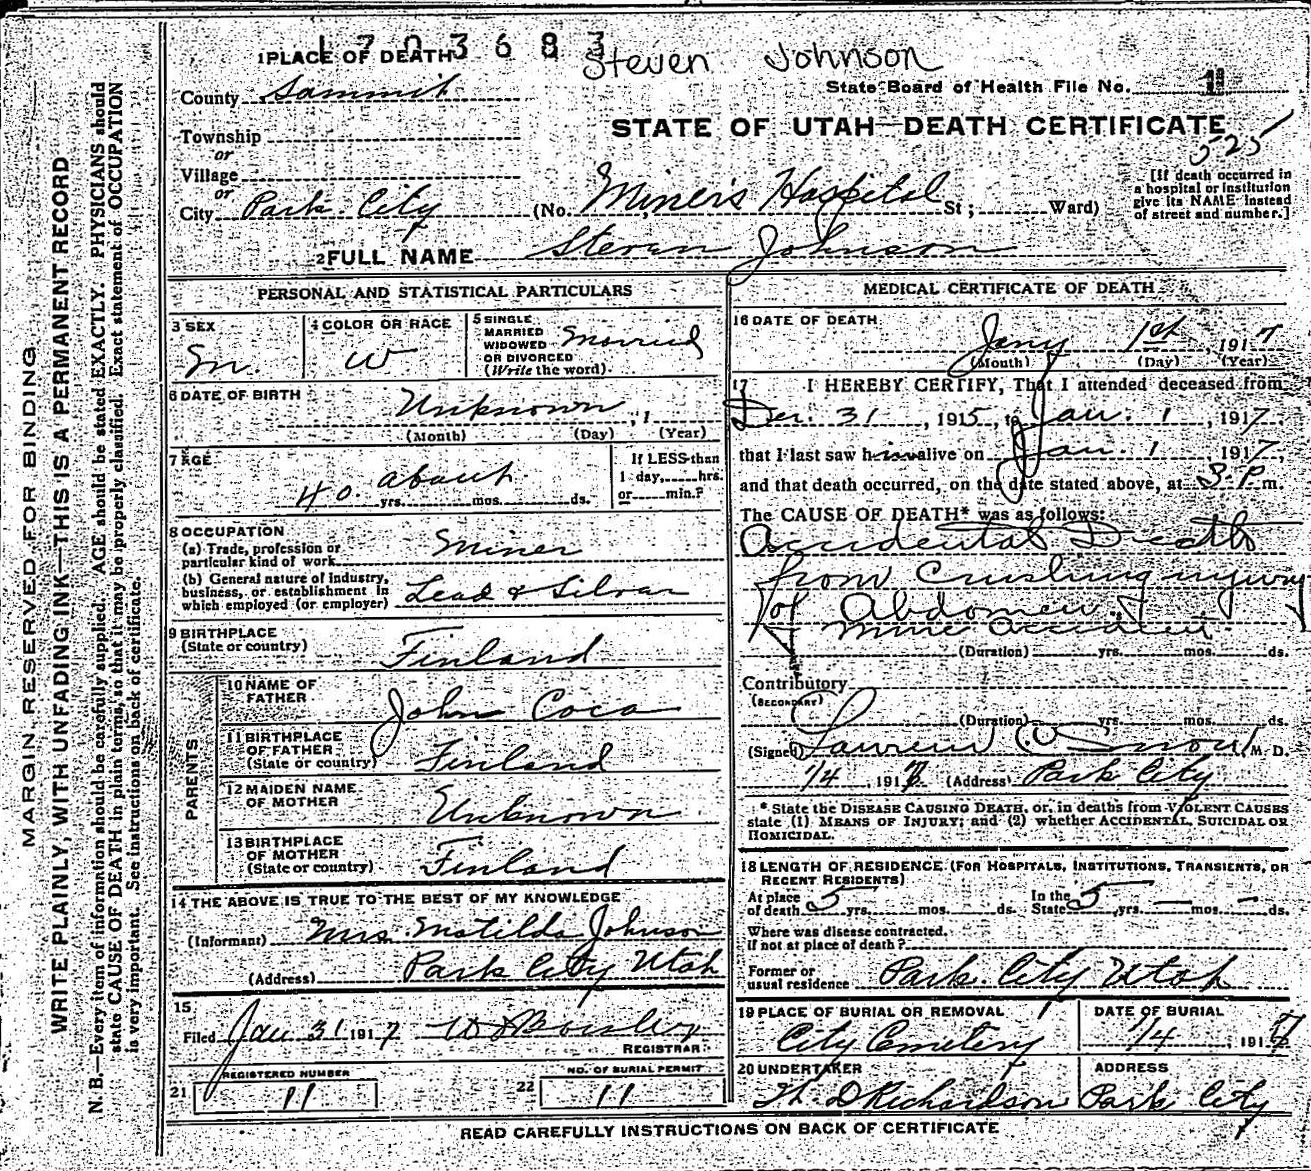 1703683
Steven Johnson
1 PLACE OF DEATH
State Board of Health File No. 1
County Sammit
STATE OF UTAH—DEATH CERTIFICATE
525
Township
or
Village
or
City Park City (No. Miner's Hospital St ; Ward)
[If death occurred in
a hospital or institution
give its NAME instead
of street and number.]
2 FULL NAME Steven Johnson
PERSONAL AND STATISTICAL PARTICULARS
3 SEX
M.
4 COLOR OR RACE
W
5 SINGLE
MARRIED
WIDOWED
OR DIVORCED
(Write the word)
Married
6 DATE OF BIRTH
Unknown , 1
(Month) (Day) (Year)
7 AGE
about
40 yrs. mos. ds.
If LESS than
1 day, hrs.
or min.?
8 OCCUPATION
(a) Trade, profession or
particular kind of work Miner
(b) General nature of industry,
business, or establishment in
which employed (or employer) Lead & Silver
9 BIRTHPLACE
(State or country) Finland
PARENTS
10 NAME OF
FATHER John Coca
11 BIRTHPLACE
OF FATHER
(State or country) Finland
12 MAIDEN NAME
OF MOTHER Unknown
13 BIRTHPLACE
OF MOTHER
(State or country) Finland
14 THE ABOVE IS TRUE TO THE BEST OF MY KNOWLEDGE
(Informant) Mrs Matilda Johnson
(Address) Park City Utah
15
Filed Jan 31 1917
REGISTRAR
21 REGISTERED NUMBER
11
22 NO. OF BURIAL PERMIT
11
MEDICAL CERTIFICATE OF DEATH
16 DATE OF DEATH
Jany 1st 1917
(Month) (Day) (Year)
17 I HEREBY CERTIFY, That I attended deceased from
Dec. 31, 1915, to Jan. 1, 1917,
that I last saw him alive on Jan. 1 1917,
and that death occurred, on the date stated above, at 3 P m.
The CAUSE OF DEATH* was as follows:
Accidental Death
from Crushing injury
of Abdomen.
Mine accident
(Duration) yrs. mos. ds.
Contributory
(SECONDARY)
(Duration) yrs. mos. ds.
(Signed) Lauren W Snow M. D.
1/4 1917 (Address) Park City
* State the DISEASE CAUSING DEATH, or, in deaths from VIOLENT CAUSES
state (1) MEANS OF INJURY; and (2) whether ACCIDENTAL, SUICIDAL OR
HOMICIDAL.
18 LENGTH OF RESIDENCE (FOR HOSPITALS, INSTITUTIONS, TRANSIENTS, OR
RECENT RESIDENTS)
At place
of death 5 yrs. mos. ds.
In the
State 5 yrs. — mos. — ds.
Where was disease contracted,
if not at place of death?
Former or
usual residence Park City Utah
19 PLACE OF BURIAL OR REMOVAL
City Cemetery
DATE OF BURIAL
1/4, 1917
20 UNDERTAKER
Th. D Richardson
ADDRESS
Park City
READ CAREFULLY INSTRUCTIONS ON BACK OF CERTIFICATE
MARGIN RESERVED FOR BINDING
WRITE PLAINLY, WITH UNFADING INK—THIS IS A PERMANENT RECORD
N. B.—Every item of information should be carefully supplied. AGE should be stated EXACTLY. PHYSICIANS should
state CAUSE OF DEATH in plain terms, so that it may be properly classified. Exact statement of OCCUPATION
is very important. See instructions on back of certificate.